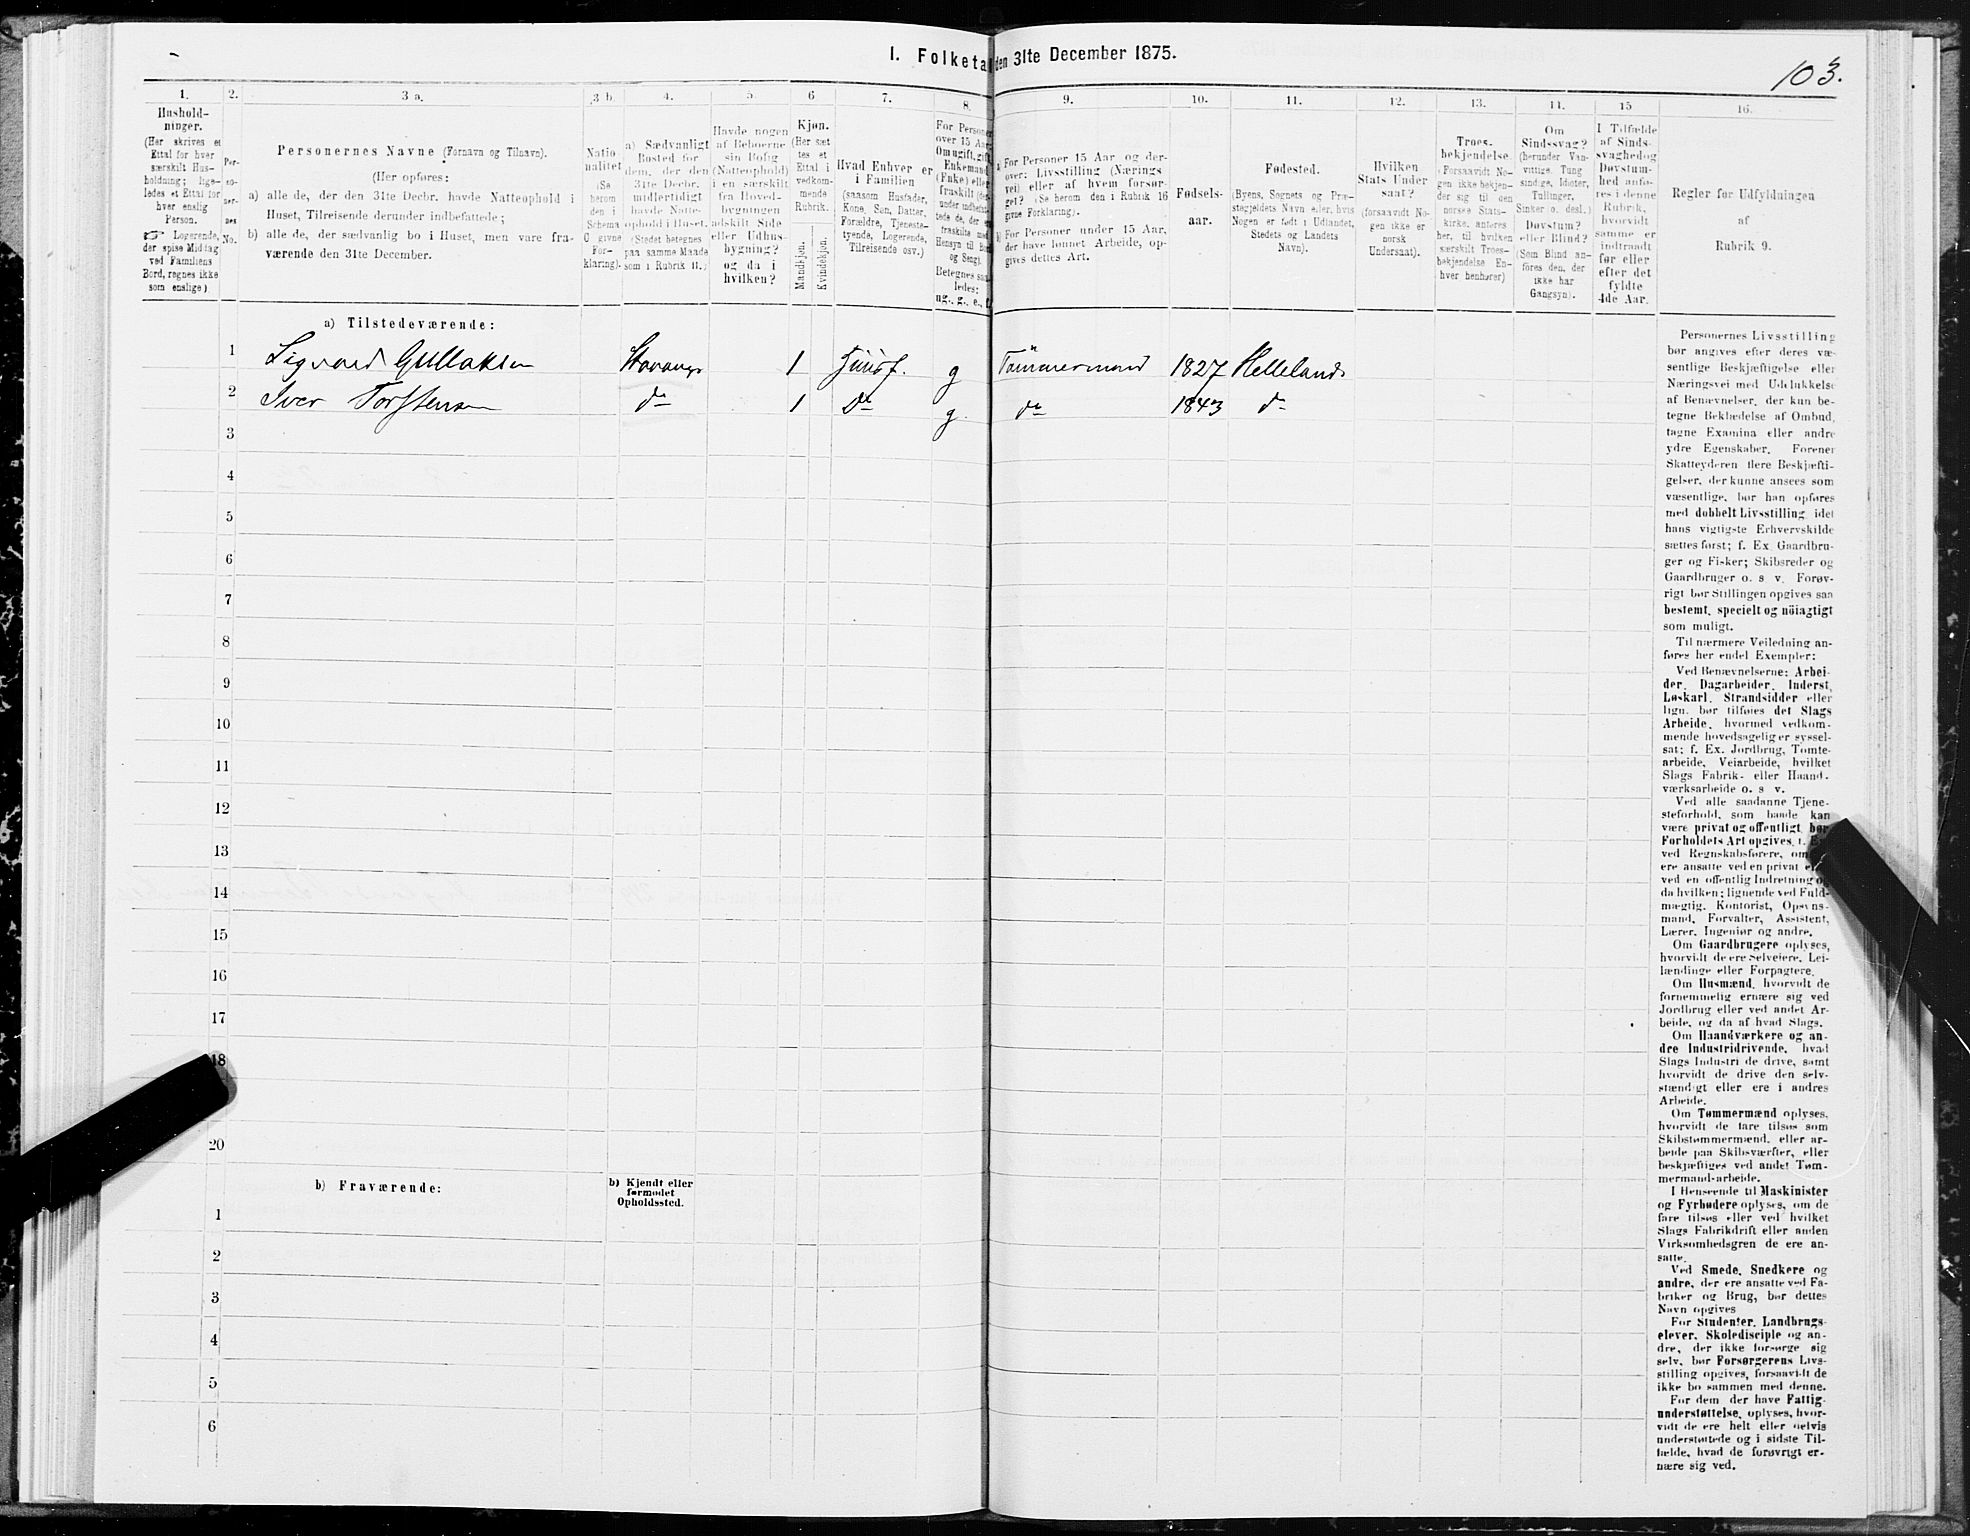 I. Folketal den 31te December 1875.
103.
1.
Hushold-
ninger.
(Her skrives et
Ettal for hver
særskilt Hus-
holdning; lige-
ledes et Ettal for
hver enslig
Person.
Logerende,
der spise Middag
ved Familiens
Bord, regnes ikke
som enslige)
2.
Per-
so-
ner-
nes
No.
3 a.
Personernes Navne (Fornavn og Tilnavn).
(Her opføres:
a) alle de, der den 31te Decbr. havde Natteophold i
Huset, Tilreisende derunder indbefattede;
b) alle de, der sædvanlig bo i Huset, men vare fra-
værende den 31te December.
3 b.
Natio
nalitet
(Se
herom
den i
Schema
C givne
For-
klaring).
4.
a) Sædvanligt
Bosted for
dem, der den
31te Decbr.
midlertidigt
havde Natte-
ophold i Huset.
(Stedet betegnes
paa samme Maade
som i Rubrik 11.)
5.
Havde nogen
af Beboerne
sin Bolig
(Natteophold)
i en særskilt
fra Hoved-
bygningen
adskilt Side
eller Udhus-
bygning?
og da i
hvilken?
6
Kjøn.
(Her sæt
tes et
Ettal i
vedkom-
mende
Rubrik.
Mandkjøn.
Kvindekjøn.
7.
Hvad Enhver er
i Familien
(saasom Husfader,
Kone, Søn, Datter,
Forældre, Tjeneste-
tyende, Logerende,
Tilreisende osv.)
8.
For Personer
over 15 Aar
Om ugift, gift,
Enkemand
(Enke) eller
fraskilt
Hensyn til Bord
og Seng).
Betegnes saa-
ledes:
ug., g., e., f.
9.
a) For Personer 15 Aar og der-
over: Livsstilling (Nærings
vei) eller af hvem forsør-
get? (Se herom den i Rubrik 16
givne Forklaring).
b) For Personer under 15 Aar,
der have lønnet Arbeide, op-
gives dettes Art.
10.
Fødsels-
aar.
11.
Fødested.
(Byens, Sognets og Præ-
stegjeldets Navn eller, hvis
Nogen er født i Udlandet,
Stedets og Landets
Navn).
12.
Hvilken
Stats Under
saat?
(forsaavidt No-
gen ikke er
norsk
Undersaat).
13.
Troes-
bekjendelse.
(Forsaavidt No-
gen ikke bekjen-
der sig til den
norske Stats-
kirke, anføres
her, til hvilken
særskilt Troes-
bekjendelse En-
hver henhører)
14.
Om
Sindssvag?
(herunder Van-
vittige, Tung
sindige, Idioter,
Tullinger,
Sinker o. desl.)
Døvstum?
eller Blind?
(Som Blind an-
føres den, der
ikke har
Gangsyn).
15
I Tilfælde
af Sinds-
svaghed og
Døvstum-
hed anfø-
res i denne
Rubrik,
hvorvidt
samme er
indtraadt
før eller
efter det
fyldte
4de Aar.
16.
Regler for Udfyldningen
af
Rubrik 9.
a) Tilstedeværende:
1 Sigvard Gullaksen Stavanger 1 Huusf. g Tömmermand 1827 Helleland
2 Iver Torstensen do 1 Do g. do 1843 do
3
4
5
6
7
8
9
10
11
12
13
14
15
16
17
18
20
b) Fraværende:
b) Kjendt eller
formodet
Opholdssted.
1
2
3
4
5
6
Personernes Livsstilling
bør angives efter deres væ-
sentlige Beskjæftigelse eller
Næringsvei med Udelukkelse
af Benævnelser, der kun be-
tegne Beklædelse af Ombud,
tagne Examina eller andre
ydre Egenskaber. Forener
Skatteyderen flere Beskjæfti-
gelser, der kunne ansees som
væsentlige, bør han opføres
med dobbelt Livsstilling, idet
hans vigtigste Erhvervskilde
sættes først; f. Ex. Gaardbru-
ger og Fisker; Skibsreder og
Gaardbruger o. s v. Forøv-
rigt bør Stillingen opgives saa
bestemt, specielt og nöiagtigt
som muligt.
Til nærmere Veiledning an-
føres her endel Exempler:
Ved Benævnelserne: Arbei-
der, Dagarbeider, Inderst,
Løskarl, Strandsidder eller
lign. bør tilføies det Slags
Arbeide, hvormed vedkom-
mende hovedsagelig er syssel-
sat; f. Ex. Jordbrug, Tomte-
arbeide, Veiarbeide, hvilket
Slags Fabrik- eller Haand-
værksarbeide o. s v.
Ved alle saadanne Tjene-
steforhold, som baade kan
være privat og offentligt, bør
Forholdets Art opgives, f. Ex.
ved Regnskabsførere, om de
ere ansatte ved en privat eller
ved en offentlig Indretning og
da hvilken; lignende ved Fuld-
mægtig, Kontorist, Opsyns-
mand, Forvalter, Assistent,
Lærer, Ingeniør og andre.
Om Gaardbrugere oplyses,
hvorvidt de ere Selveiere, Lei-
lændinge eller Forpagtere.
Om Husmænd, hvorvidt de
fornemmelig ernære sig ved
Jordbrug eller ved andet Ar-
beide, og da af hvad Slags.
Om Haandværkere og an-
dre Industridrivende, hvad
Slags Industri de drive, samt
hvorvidt de drive den selv-
stændigt eller ere i andres
Arbeide.
Om Tømmermænd oplyses,
hvorvidt de fare tilsøs som
Skibstømmermænd, eller ar-
beide paa Skibsværfter, eller
beskjæftiges ved andet Tøm-
mermandsarbeide.
I Henseende til Maskinister
og Fyrbødere oplyses, om de
fare tilsøs eller ved hvilket
Slags Fabrikdrift eller anden
Virksomhedsgren de ere an-
satte.
Ved Smede, Snedkere og
andre, der ere ansatte ved Fa-
briker og Brug, bør dettes
Navn opgives
For Studenter, Landbrugs-
elever, Skoledisciple og an-
dre, der ikke forsørge sig
selv, bør Forsørgerens Livs-
stilling opgives, forsaavidt de
ikke bo sammen med denne.
For dem der have Fattig-
understøttelse, oplyses, hvor-
vidt de ere helt eller delvis
understøttede og i sidste Til-
fælde, hvad de forøvrigt er-
nære sig ved.